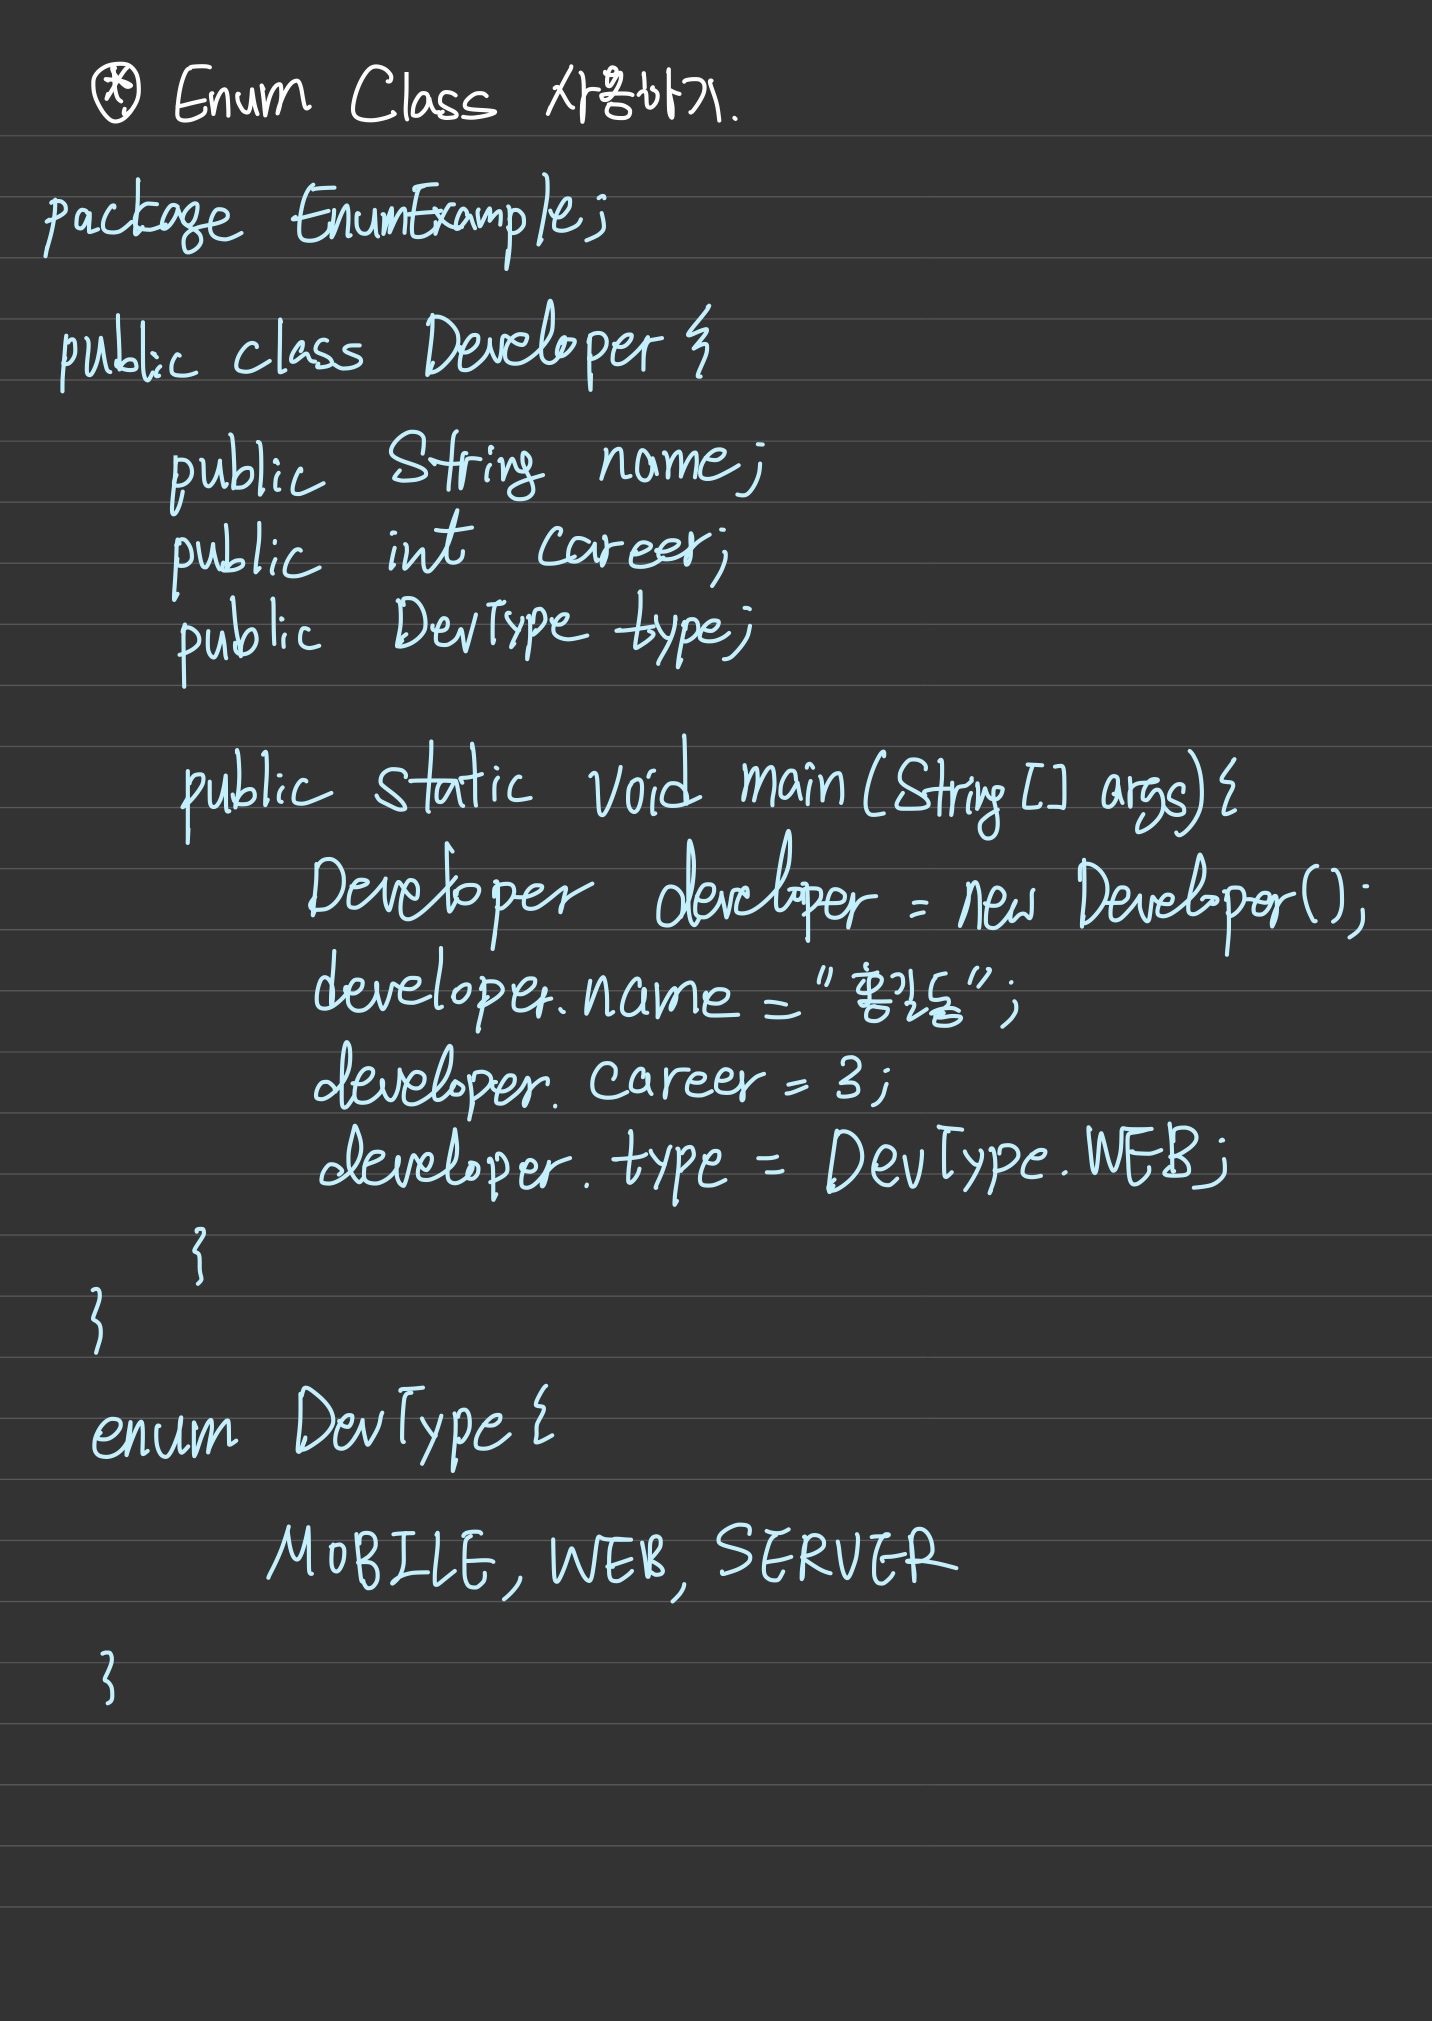 ⊛ Enum Class 사용하기.
package EnumExample;
public class Developer {
public String name;
public int career;
public DevType type;
public static void main (String [] args) {
Developer developer = new Developer();
developer.name = "홍길동";
developer. career = 3;
developer. type = DevType. WEB;
}
}
enum DevType {
MOBILE, WEB, SERVER
}